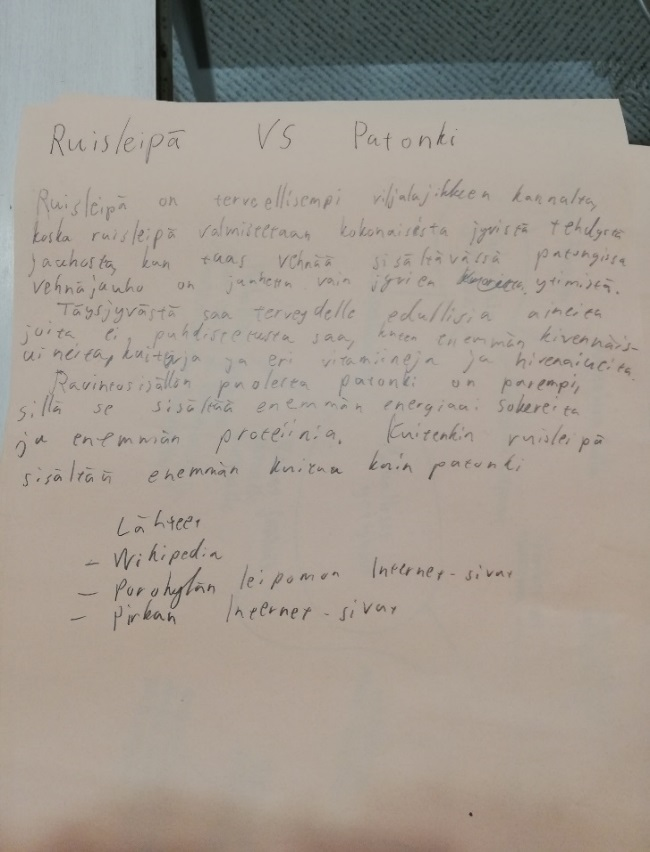 Ruisleipä VS Patonki
Ruisleipä on terveellisempi viljalajikkeen kannalta,
koska ruisleipä valmistetaan kokonaisista jyvistä tehdystä
jauhosta, kun taas vehnää sisältävässä patongissa
vehnäjauho on jauhettu vain jyvien ytimistä.
Täysjyvästä saa terveydelle edullisia aineita
joita ei puhdistetusta saa, kuten enemmän kivennäis-
aineita, kuituja ja eri vitamiineja ja hivenaineita.
Ravintosisällön puolesta patonki on parempi,
sillä se sisältää enemmän energiaa, sokereita
ja enemmän proteiinia. Kuitenkin ruisleipä
sisältää enemmän kuitua kuin patonki
Lähteet
- Wikipedia
- Porokylän leipomon Internet-sivut
- Pirkan Internet-sivut